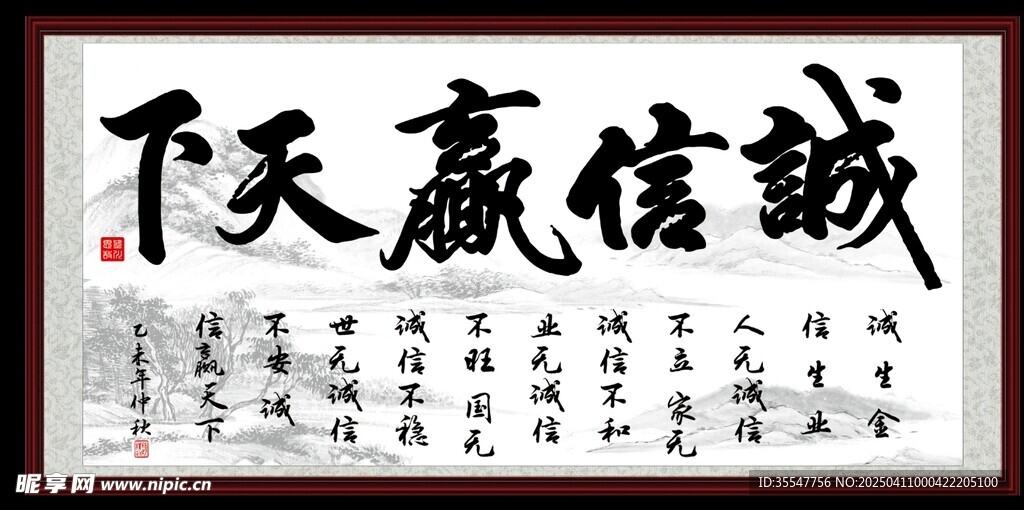 誠信贏天下
诚生金
信生业
人无诚信
不立家无
诚信不和
业无诚信
不旺国无
诚信不稳
世无诚信
不安诚
信赢天下
乙未年仲秋
昵享网 www.nipic.cn
ID:35547756 NO:20250411000422205100